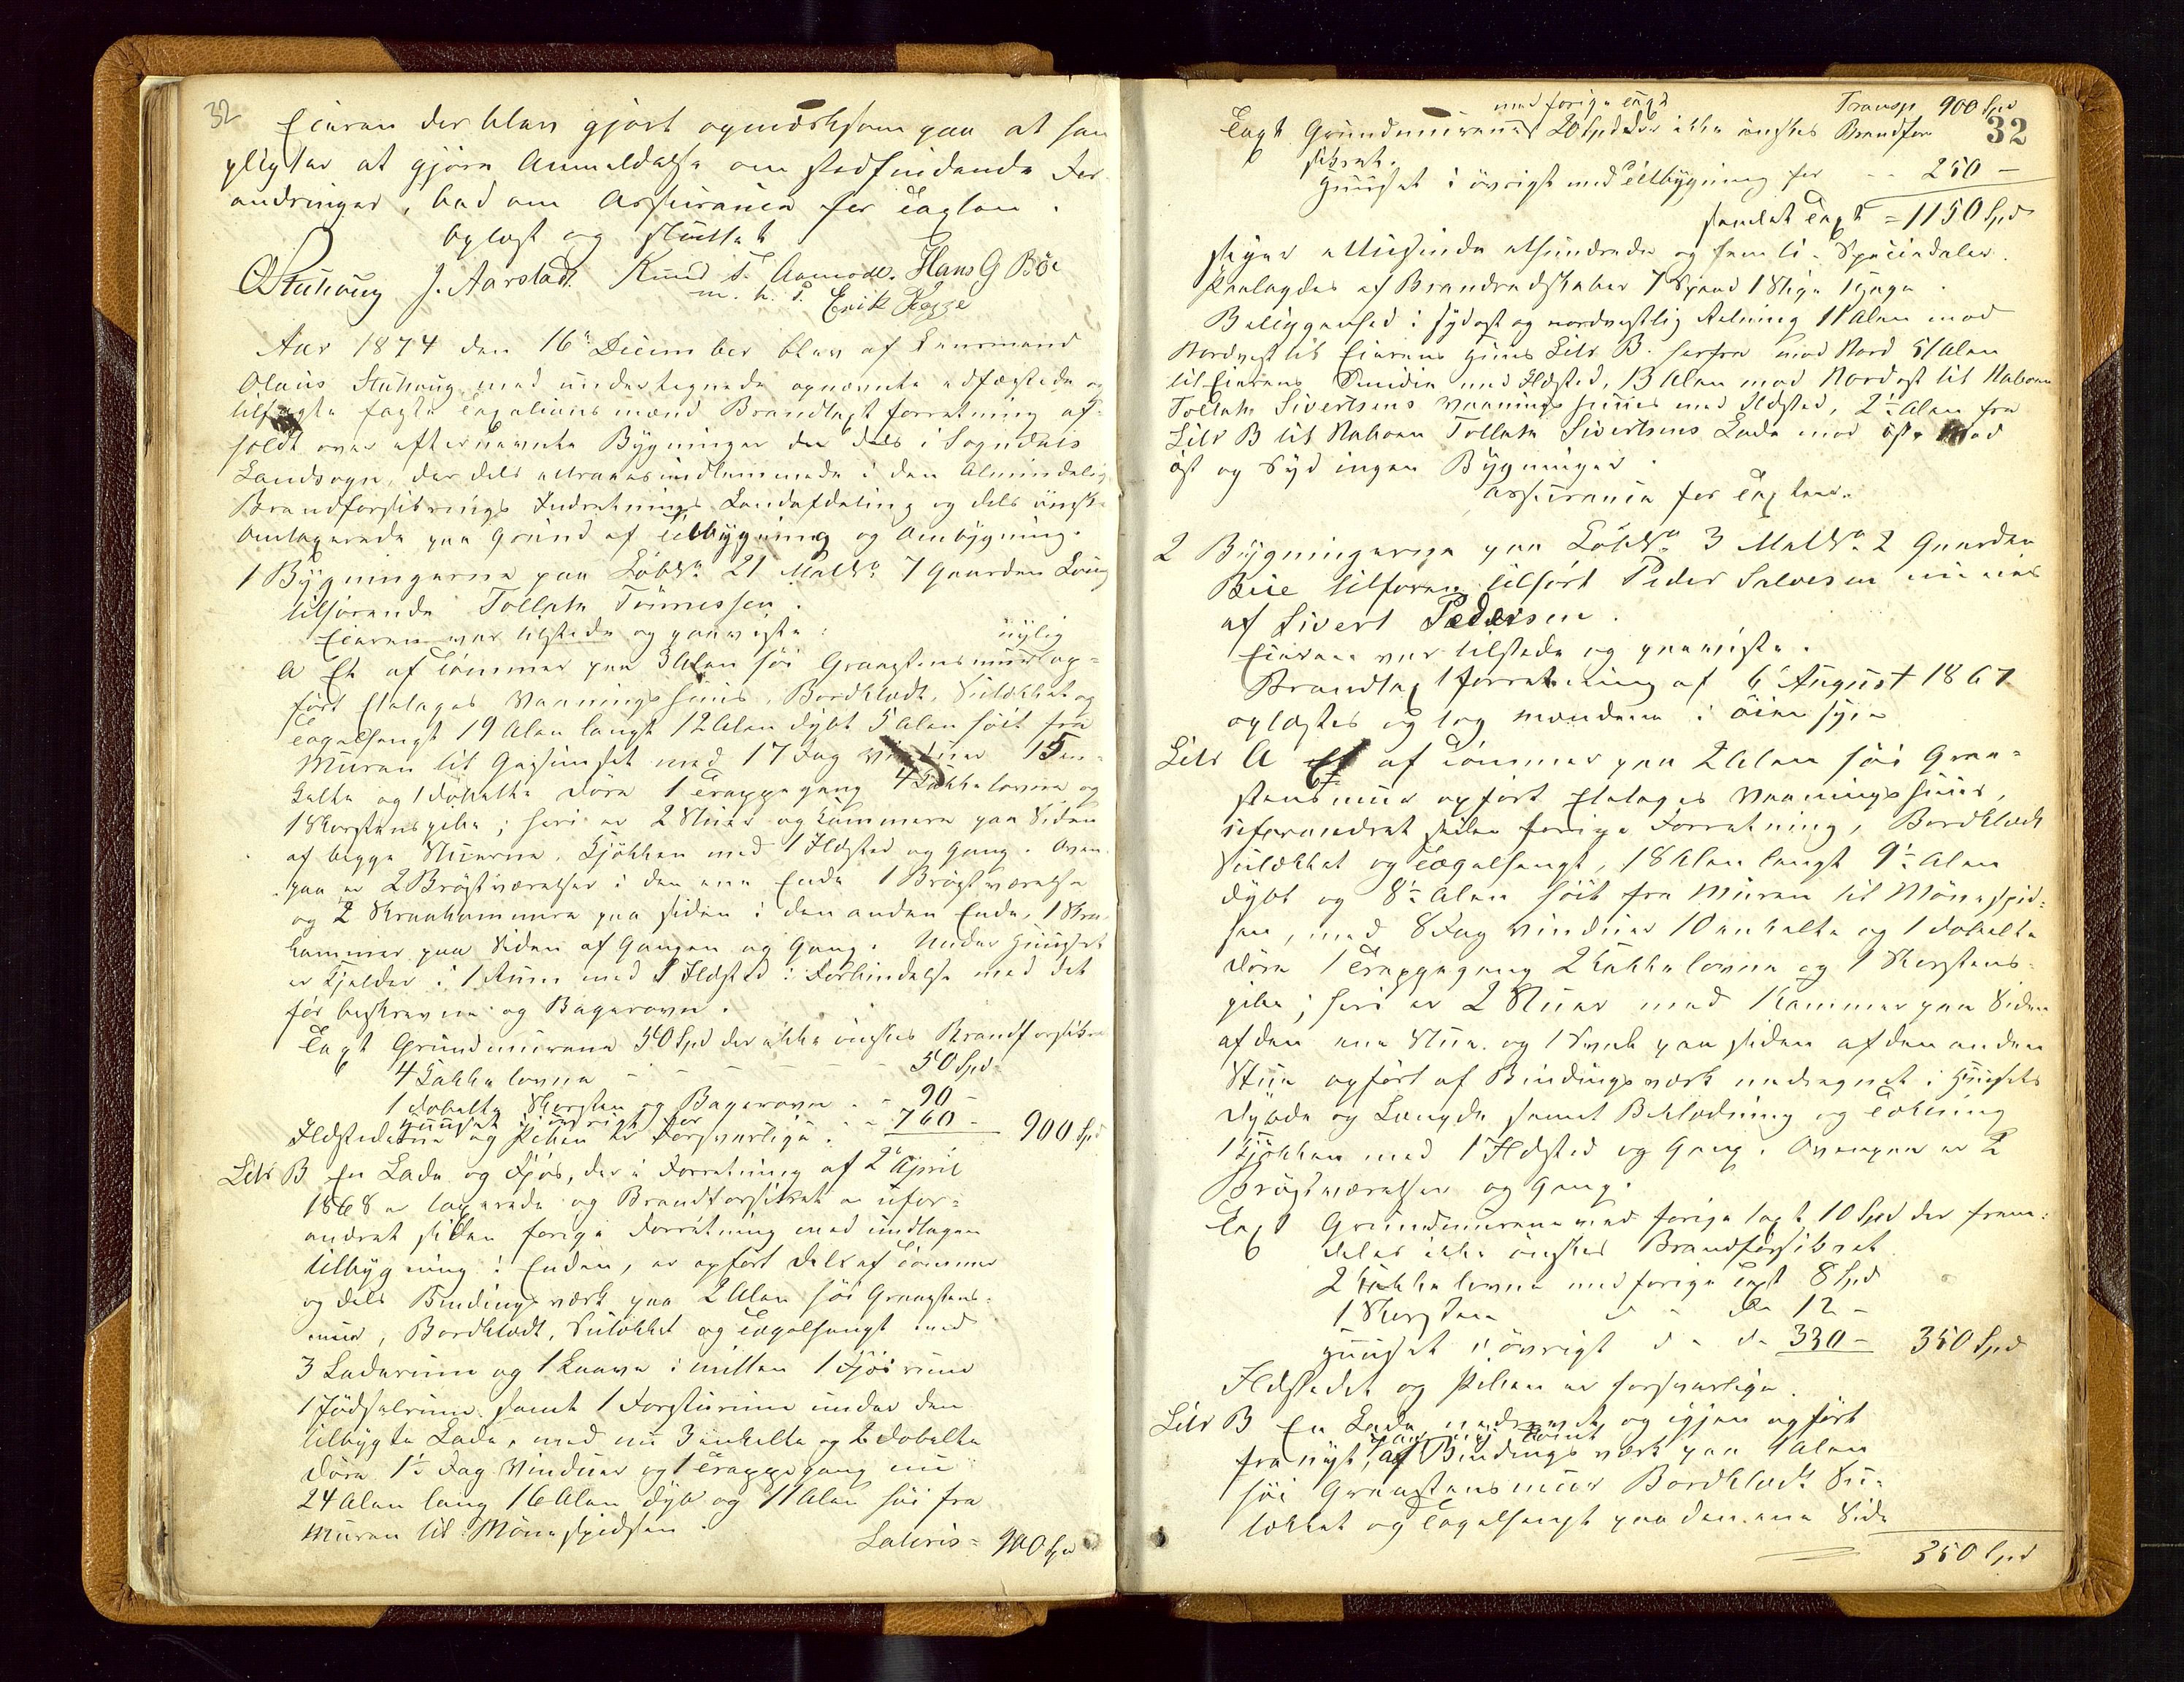 32
Eieren der blev gjort opmærksom paa at han
pligter at gjøre Anmeldelse om stedfindende For-
andringer, bad om Assurance for Taxten.
Oplæst og sluttet
O Stuhoug J. Aarstad. Knud T. Aamodt. Hans G Böe
m. h. P. Erik Hegge
Aar 1874 den 16de December blev af Lensmand
Olaus Stuhoug med undertegnede opnævnte edfæstede og
tilsagte faste Taxationsmænd Brandtaxtforretning af-
holdt over efternævnte Bygninger der dels i Sogndals
Landsogn, der dels attraaes indlemmede i den Almindelig
Brandforsikrings Indretnings Landafdeling og dels önsk.
omtaxerede paa Grund af Tilbygning og Ombygning.
1 Bygningerne paa LöbNo 21 MatNo 7 Gaarden Löug
tilhörende Tollak Tönnessen.
Eieren var tilstede og paaviste:
nylig
A Et af Tömmer paa 3 Alen höi Graastensmuur op-
fört Etalages Vaaningshuus, Bordklædt, Sulækket og
Tagelhængt 19 Alen langt 12 Alen dybt 5 Alen höit fra
Muren til Gesimset med 17 Fag Vinduer 15 en-
kelte og 1 dobelte Döre 1 Trappegang 4 Kakkelovne og
1 Skorstenspibe; heri er 2 Stuer og Kammere paa Siden
af begge Stuerne, Kjökken med 1 Ildsted og Gang. Oven-
paa er 2 Brögstværelser i den ene Ende 1 Brögstværelse
og 2 Skraakammere paa siden i den anden Ende, 1 Skra-
kammer paa Siden af Gangen og Gang. Under Huuset
er Kjelder i 1 Rum med 1 Ildsted i Forbindelse med det
för beskrevne og Bagerovn.
Taxt Grundmurene 50 Spd der ikke önskes Brandforsikr
4 Kakkelovne - - - - - 50 Spd
1 dobelte Skorsten og Bagerovn - - 90 -
Huuset i övrigt for - 760 -
Ildstederne og Piben er Forsvarlige. 900 Spd
Litr B En Lade og Fjös, der i Forretning af 2de April
1868 er taxerede og Brandforsikret er ufor-
andret siden forige Forretning med undtagen
tilbygning i Enden, er opfört dels af Tömmer
og dels Bindingsværk paa 2 Alen höi Graastens-
muur, Bordklædt, Sulækket og Tagelhængt med
3 Laderum og 1 Laave i midten 1 Fjösrum
1 Födselrum samt 1 Forsturum under den
tilbygte Lade, med nu 3 enkelte og 2 dobelte
Döre 1½ Fag Vinduer og 1 Trappegang nu
24 Alen lang 16 Alen dyb og 11 Alen höi fra
Muren til Mönespidsen.
Lateris = 900 Spd
32
med forige Taxt
Transp 900 Spd
Taxt Grundmurene 20 Spd der ikke önskes Brandfor-
sikret.
Huuset i övrigt med Tilbygning for - - 250 -
samlet Taxt = 1150 Spd
siger ettusinde ethundrede og femti Speciedaler.
Paalagdes af Brandredskaber 7 Spand 1 Stige 1 Hage.
Beliggenhed i sydost og nordvestlig Retning 11 Alen mod
Nordvest til Eierens Huus Litr B. herfra mod Nord 51 Alen
til Eierens Smidie med Ildsted, 13 Alen mod Nordost til Naboen
Tollak Sivertsens Vaaningshuus med Ildsted, 2½ Alen fra
Litr B til Naboen Tollak Sivertsens Lade mod öst. Mod
öst og Syd ingen Bygninger.
Assurance for Taxten.
2 Bygningerne paa LöbNo 3 MatNo 2 Gaarden
Böe tilforn tilhört Peder Salvesen nu eies
af Sivert Pedersen.
Eieren var tilstede og paaviste.
Brandtaxtforretning af 6 August 1867
oplæstes og tog Mændene i Öiensyn
Litr A Et af Tömmer paa 2 Alen höi Graa-
stensmuur opfört Etalages Vaaningshuus,
uforandret siden forige Forretning, Bordklædt
Sulækket og Tagelhængt, 18 Alen langt 9½ Alen
dybt og 8½ Alen höit fra Muren til Mönespid-
sen, med 8 Fag Vinduer 10 enkelte og 1 dobelte
Döre 1 Trappegang 2 Kakkelovne og 1 Skorstens-
pibe; heri er 2 Stuer med 1 Kammer paa Siden
af den ene Stue og 1 Svale paa siden af den anden
Stue opfört af Bindingsværk medregnet i Huusets
Dybde og Længde samt Beklædning og Tækning
1 Kjökken med 1 Ildsted og Gang. Ovenpaa er 2
Brögstværelser og Gang.
Taxt Grundmurene med forige taxt 10 Spd der frem-
deles ikke önskes Brandforsikret
2 Kakkelovne med forige Taxt 8 Spd
1 Skorsten d - do 12 -
Huuset i övrigt d - do 330 - 350 Spd
Ildstedet og Piben er forsvarlige.
Litr B En Lade nedrevet og igjen opfört
fra nyt, af Bindingsværk paa 1 Alen
höi Graastensmuur Bordklædt Su-
lækket og Tagelhængt paa den ene Side
350 Spd